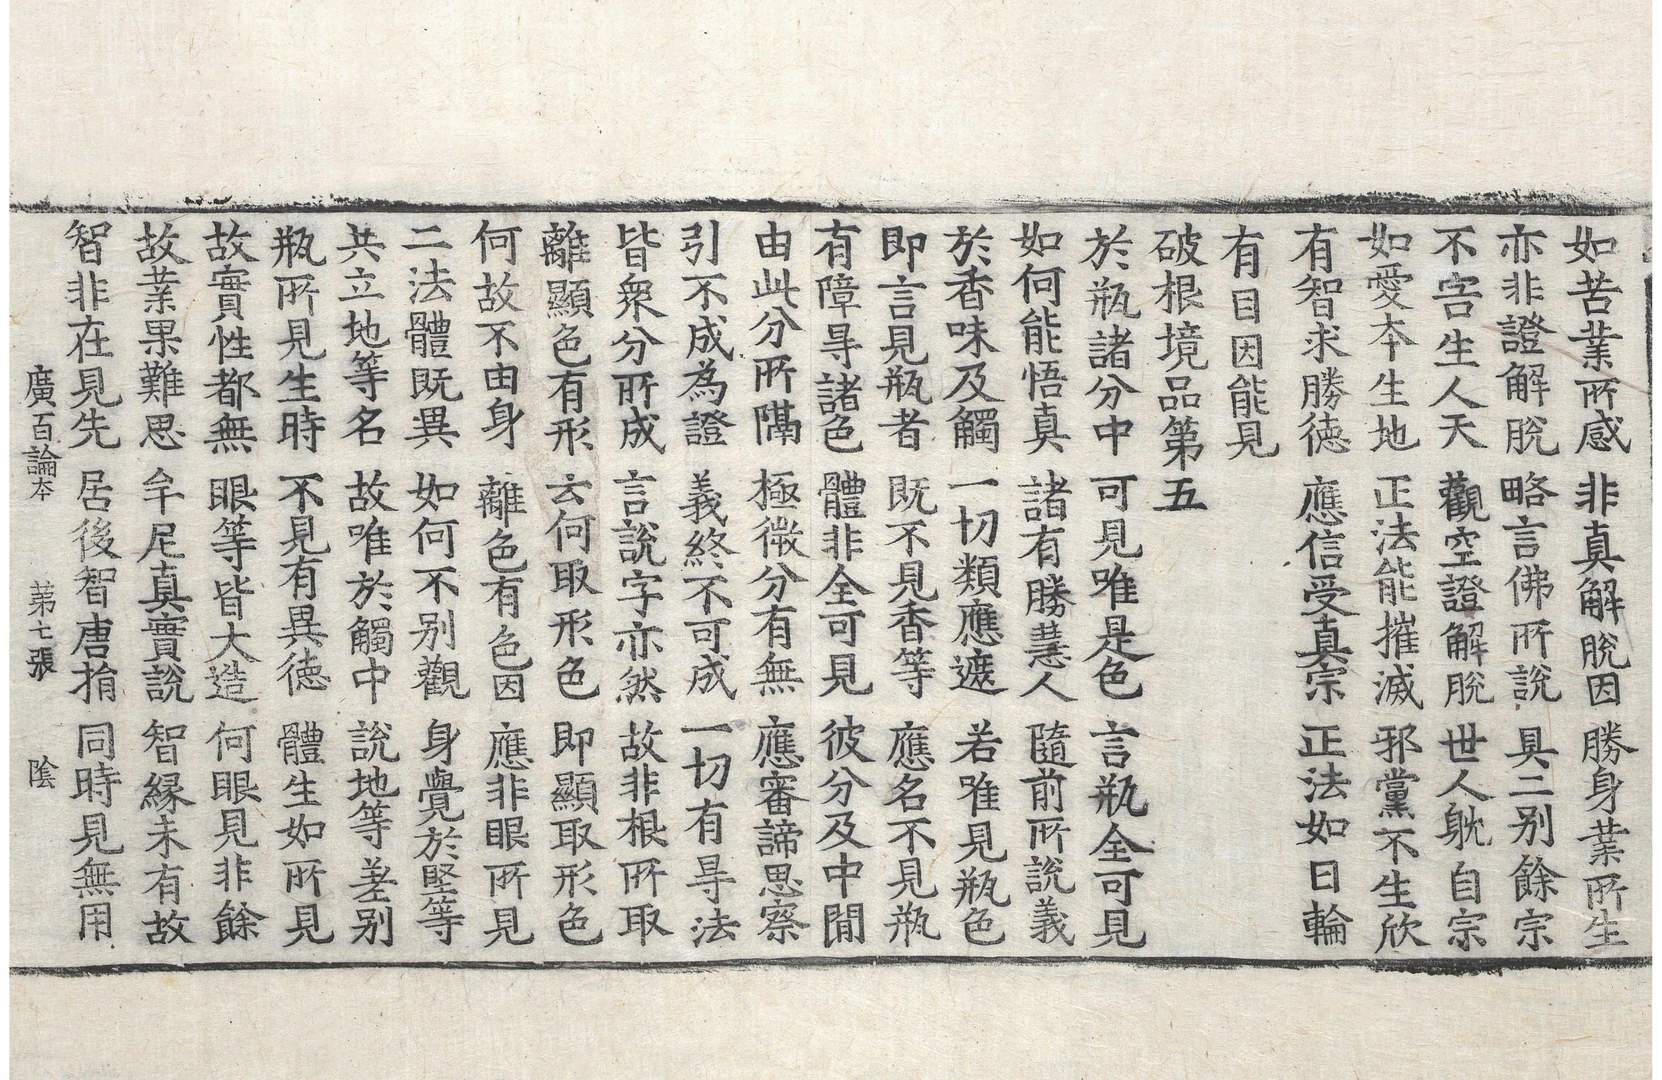 如苦業所感 非真解脫因 勝身業所生
亦非證解脫 略言佛所說 具二别餘宗
不害生人天 觀空證解脫 世人躭自宗
如愛本生地 正法能摧滅 邪黨不生欣
有智求勝德 應信受真宗 正法如日輪
有目因能見
破根境品第五
於瓶諸分中 可見唯是色 言瓶全可見
如何能悟真 諸有勝慧人 隨前所說義
於香味及觸 一切類應遮 若唯見瓶色
即言見瓶者 既不見香等 應名不見瓶
有障㝵諸色 體非全可見 彼分及中間
由此分所隔 極微分有無 應審諦思察
引不成為證 義終不可成 一切有㝵法
皆衆分所成 言說字亦然 故非根所取
離顯色有形 云何取形色 即顯取形色
何故不由身 離色有色因 應非眼所見
二法體既異 如何不别觀 身覺於堅等
共立地等名 故唯於觸中 說地等差别
瓶所見生時 不見有異德 體生如所見
故實性都無 眼等皆大造 何眼見非餘
故業果難思 牟尼真實說 智緣未有故
智非在見先 居後智唐捐 同時見無用
廣百論本 第七張 陰